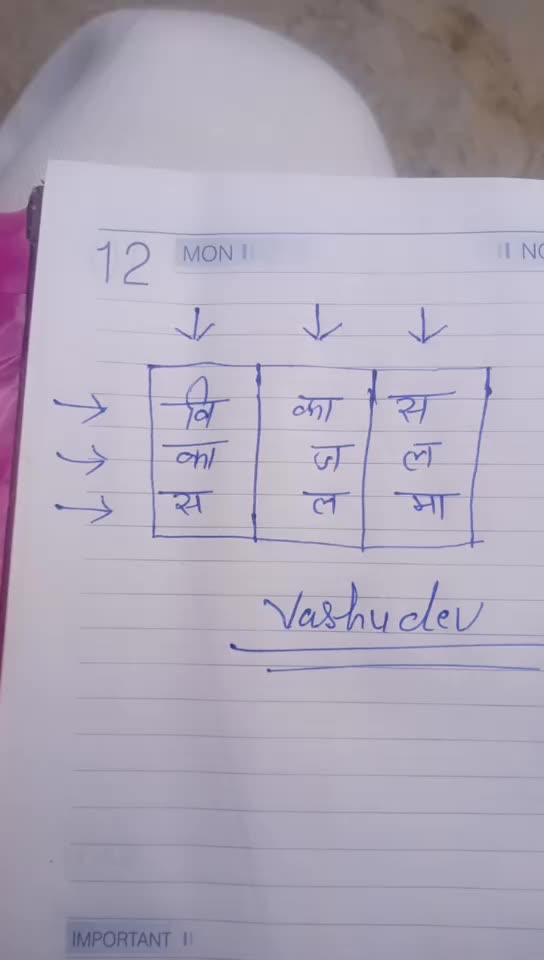 12 MON NO
वि का स
का ज ल
स ल मा
Vashudev
IMPORTANT